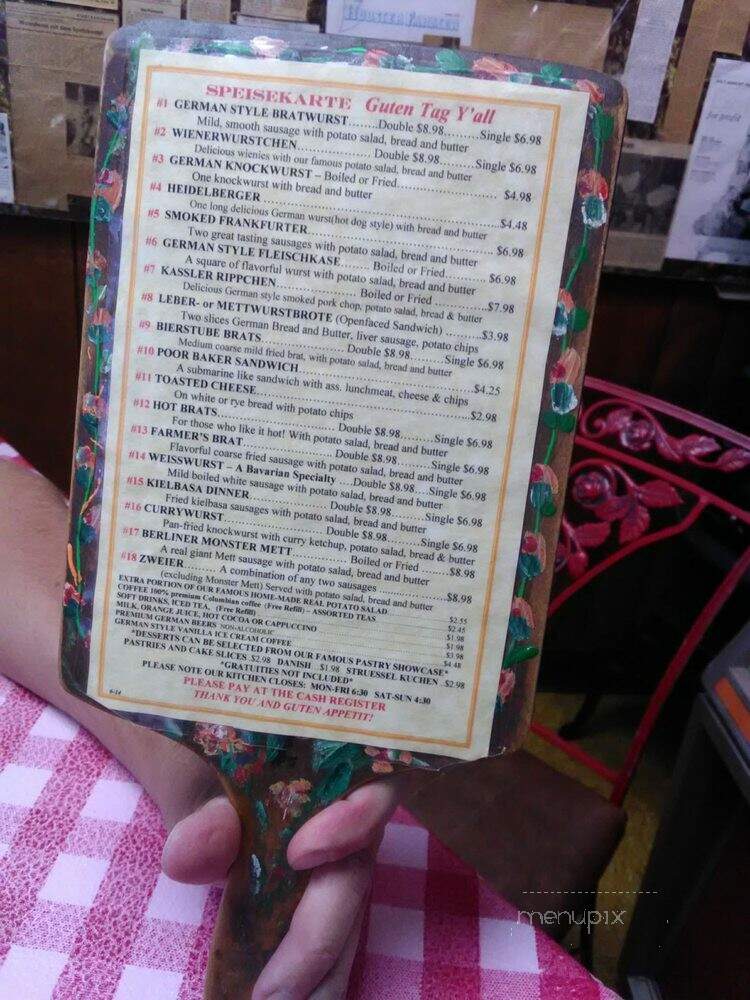 SPEISEKARTE Guten Tag Y'all
#1 GERMAN STYLE BRATWURST........Double $8.98..........Single $6.98
Mild, smooth sausage with potato salad, bread and butter
#2 WIENERWURSTCHEN.................... Double $8.98..........Single $6.98
Delicious wienies with our famous potato salad, bread and butter
#3 GERMAN KNOCKWURST – Boiled or Fried........................... $4.98
One knockwurst with bread and butter
#4 HEIDELBERGER ...............................................................$4.48
One long delicious German wurst(hot dog style) with bread and butter
#5 SMOKED FRANKFURTER.................................................. $6.98
Two great tasting sausages with potato salad, bread and butter
#6 GERMAN STYLE FLEISCHKASE........ Boiled or Fried............ $6.98
A square of flavorful wurst with potato salad, bread and butter
#7 KASSLER RIPPCHEN...................... Boiled or Fried ...............$7.98
Delicious German style smoked pork chop, potato salad, bread & butter
#8 LEBER- or METTWURSTBROTE (Openfaced Sandwich) ..........$3.98
Two slices German Bread and Butter, liver sausage, potato chips
#9 BIERSTUBE BRATS...................... Double $8.98..........Single $6.98
Medium coarse mild fried brat, with potato salad, bread and butter
#10 POOR BAKER SANDWICH.............................................$4.25
A submarine like sandwich with ass. lunchmeat, cheese & chips
#11 TOASTED CHEESE.........................................................$2.98
On white or rye bread with potato chips
#12 HOT BRATS............................... Double $8.98..........Single $6.98
For those who like it hot! With potato salad, bread and butter
#13 FARMER'S BRAT....................... Double $8.98..........Single $6.98
Flavorful coarse fried sausage with potato salad, bread and butter
#14 WEISSWURST – A Bavarian Specialty ....Double $8.98....Single $6.98
Mild boiled white sausage with potato salad, bread and butter
#15 KIELBASA DINNER..................... Double $8.98..........Single $6.98
Fried kielbasa sausages with potato salad, bread and butter
#16 CURRYWURST........................... Double $8.98..........Single $6.98
Pan-fried knockwurst with curry ketchup, potato salad, bread & butter
#17 BERLINER MONSTER METT............... Boiled or Fried ........$8.98
A real giant Mett sausage with potato salad, bread and butter
#18 ZWEIER.......... A combination of any two sausages ....................$8.98
(excluding Monster Mett) Served with potato salad, bread and butter
EXTRA PORTION OF OUR FAMOUS HOME-MADE REAL POTATO SALAD ........ $2.55
COFFEE 100% premium Columbian coffee (Free Refill) – ASSORTED TEAS ........ $2.45
SOFT DRINKS, ICED TEA, (Free Refill) ........ $1.98
MILK, ORANGE JUICE, HOT COCOA OR CAPPUCCINO ........ $1.98
PREMIUM GERMAN BEERS NON-ALCOHOLIC ........ $3.98
GERMAN STYLE VANILLA ICE CREAM COFFEE ........ $4.48
*DESSERTS CAN BE SELECTED FROM OUR FAMOUS PASTRY SHOWCASE*
PASTRIES AND CAKE SLICES ..$2.98 DANISH ...$1.98 STRUESSEL KUCHEN ..$2.98
*GRATUITIES NOT INCLUDED*
PLEASE NOTE OUR KITCHEN CLOSES: MON-FRI 6:30 SAT-SUN 4:30
PLEASE PAY AT THE CASH REGISTER
6-14
THANK YOU AND GUTEN APPETIT!
menupix